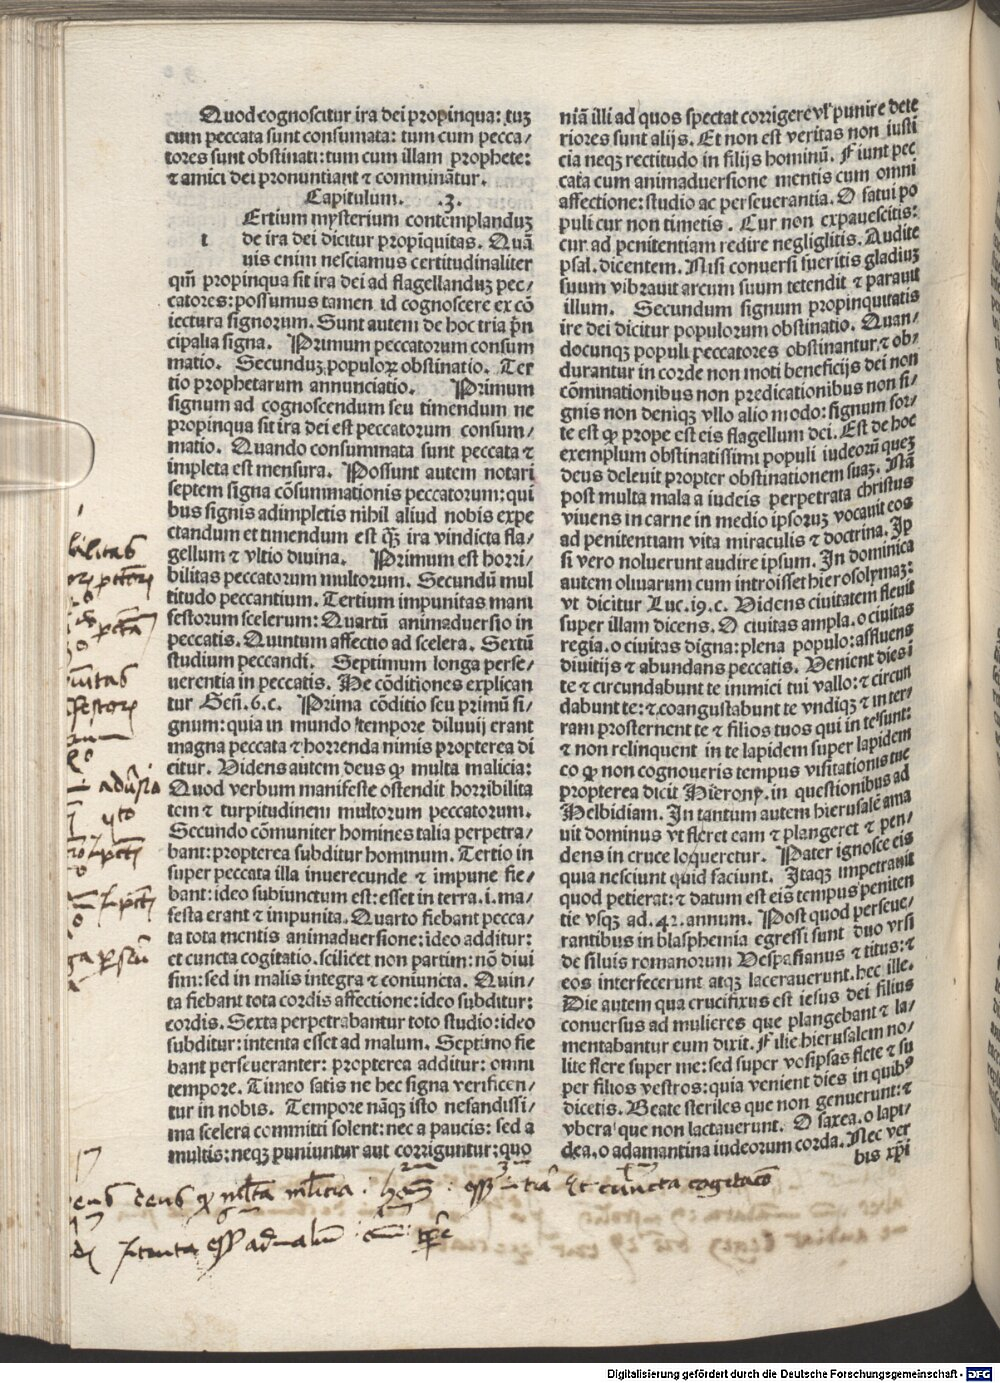 Quod cognoscitur ira dei propinqua: tuʒ
cum peccata sunt consumata: tum cum pecca/
tores sunt obstinati: tum cum illam prophete:
⁊ amici dei pronuntiant ⁊ comminãtur.
Capitulum. .3.
Ertium mysterium contemplanduʒ
t de ira dei dicitur propĩquitas. Quã
uis enim nesciamus certitudinaliter
qm̃ propinqua sit ira dei ad flagellanduʒ pec/
catores: possumus tamen id cognoscere ex cõ
iectura signorum. Sunt autem de hoc tria p̃n
cipalia signa. Primum peccatorum consum
matio. Secunduʒ populoꝝ obstinatio. Ter
tio prophetarum annunciatio. Primum
signum ad cognoscendum seu timendum ne
propinqua sit ira dei est peccatorum consum/
matio. Quando consummata sunt peccata ⁊
impleta est mensura. Possunt autem notari
septem signa cõsummationis peccatorum: qui
bus signis adimpletis nihil aliud nobis expe
ctandum et timendum est qʒ̃ ira vindicta fla/
gellum ⁊ vltio diuina. Primum est horri/
bilitas peccatorum multorum. Secundũ mul
titudo peccantium. Tertium impunitas mani
festorum scelerum: Quartũ animaduersio in
peccatis. Quintum affectio ad scelera. Sextũ
studium peccandi. Septimum longa perse/
uerentia in peccatis. He cõditiones explican
tur Geñ. 6. c. Prima cõditio seu primũ si/
gnum: quia in mundo tempore diluuij erant
magna peccata ⁊ horrenda nimis propterea di
citur. Videns autem deus ꝙ multa malicia:
Quod verbum manifeste ostendit horribilita
tem ⁊ turpitudinem multorum peccatorum.
Secundo cõmuniter homines talia perpetra/
bant: propterea subditur hominum. Tertio in
super peccata illa inuerecunde ⁊ impune fie/
bant: ideo subiunctum est: esset in terra. i. ma/
festa erant ⁊ impunita. Quarto fiebant pecca/
ta tota mentis animaduersione: ideo additur:
et cuncta cogitatio. scilicet non partim: nõ diui
sim: sed in malis integra ⁊ coniuncta. Quin/
ta fiebant tota cordis affectione: ideo subditur:
cordis. Sexta perpetrabantur toto studio: ideo
subditur: intenta esset ad malum. Septimo fie
bant perseueranter: propterea additur: omni
tempore. Timeo satis ne hec signa verificen/
tur in nobis. Tempore nãqʒ isto nefandissi/
ma scelera committi solent: nec a paucis: sed a
multis: neqʒ puniuntur aut corriguntur: quo
niã illi ad quos spectat corrigere vl' punire dete
riores sunt alijs. Et non est veritas non iusti
cia neqʒ rectitudo in filijs hominũ. Fiunt pec
cata cum animaduersione mentis cum omni
affectione: studio ac perseuerantia. O fatui po
puli cur non timetis. Cur non expauescitis:
cur ad penitentiam redire negligitis. Audite
psal. dicentem. Nisi conuersi fueritis gladiuʒ
suum vibrauit arcum suum tetendit ⁊ parauit
illum. Secundum signum propinquitatis
ire dei dicitur populorum obstinatio. Quan/
docunqʒ populi peccatores obstinantur, ⁊ ob/
durantur in corde non moti beneficijs dei non
cõminationibus non predicationibus non si/
gnis non deniqʒ vllo alio modo: signum for/
te est ꝙ prope est eis flagellum dei. Est de hoc
exemplum obstinatissimi populi iudeorũ queʒ
deus deleuit propter obstinationem suaʒ. Nã
post multa mala a iudeis perpetrata christus
viuens in carne in medio ipsoruʒ vocauit eos
ad penitentiam vita miraculis ⁊ doctrina. Ip
si vero noluerunt audire ipsum. In dominica
autem oliuarum cum introisset hierosolymaʒ:
vt dicitur Luc. i9. c. Videns ciuitatem fleuit
super illam dicens. O ciuitas ampla. o ciuitas
regia. o ciuitas digna: plena populo: affluens
diuitijs ⁊ abundans peccatis. Venient dies ĩ
te ⁊ circundabunt te inimici tui vallo: ⁊ circun
dabunt te: ⁊ coangustabunt te vndiqʒ ⁊ in ter/
ram prosternent te ⁊ filios tuos qui in te sunt:
⁊ non relinquent in te lapidem super lapidem
eo ꝙ non cognoueris tempus visitationis tue
propterea dicit Hierony. in questionibus ad
Helbidiam. In tantum autem hierusalẽ ama
uit dominus vt fleret eam ⁊ plangeret ⁊ pen/
dens in cruce loqueretur. Pater ignosce eis
quia nesciunt quid faciunt. Itaqʒ impetrauit
quod petierat: ⁊ datum est eis tempus peniten
tie vsqʒ ad. 42. annum. Post quod perseue/
rantibus in blasphemia egressi sunt duo vrsi
de siluis romanorum Vespasianus ⁊ titus: ⁊
eos interfecerunt atqʒ lacerauerunt. hec ille.
Die autem qua crucifixus est iesus dei filius
conuersus ad mulieres que plangebant ⁊ la/
mentabantur eum dixit. Filie hierusalem no/
lite flere super me: sed super vosipsas flete ⁊ su
per filios vestros: quia venient dies in quibꝰ
dicetis. Beate steriles que non genuerunt: ⁊
vbera que non lactauerunt. O saxea. o lapi/
dea. o adamantina iudeorum corda. Nec ver
bis xp̃i